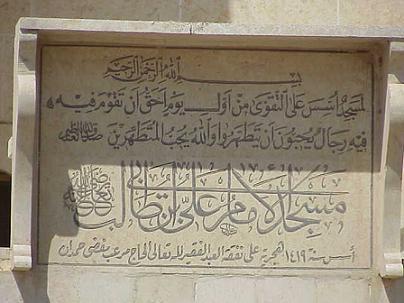 بسم الله الرحمن الرحيم
لمسجد أسس على التقوى من أول يوم أحق أن تقوم فيه
فيه رجال يحبون أن يتطهروا والله يحب المتطهرين صدق الله العظيم
مسجد الإمام علي بن أبي طالب رضي الله تعالى عنه
أسس سنة ١٤١٩ هجرية على نفقة العبد الفقير لله تعالى الحاج مرعب بفضي حمدان